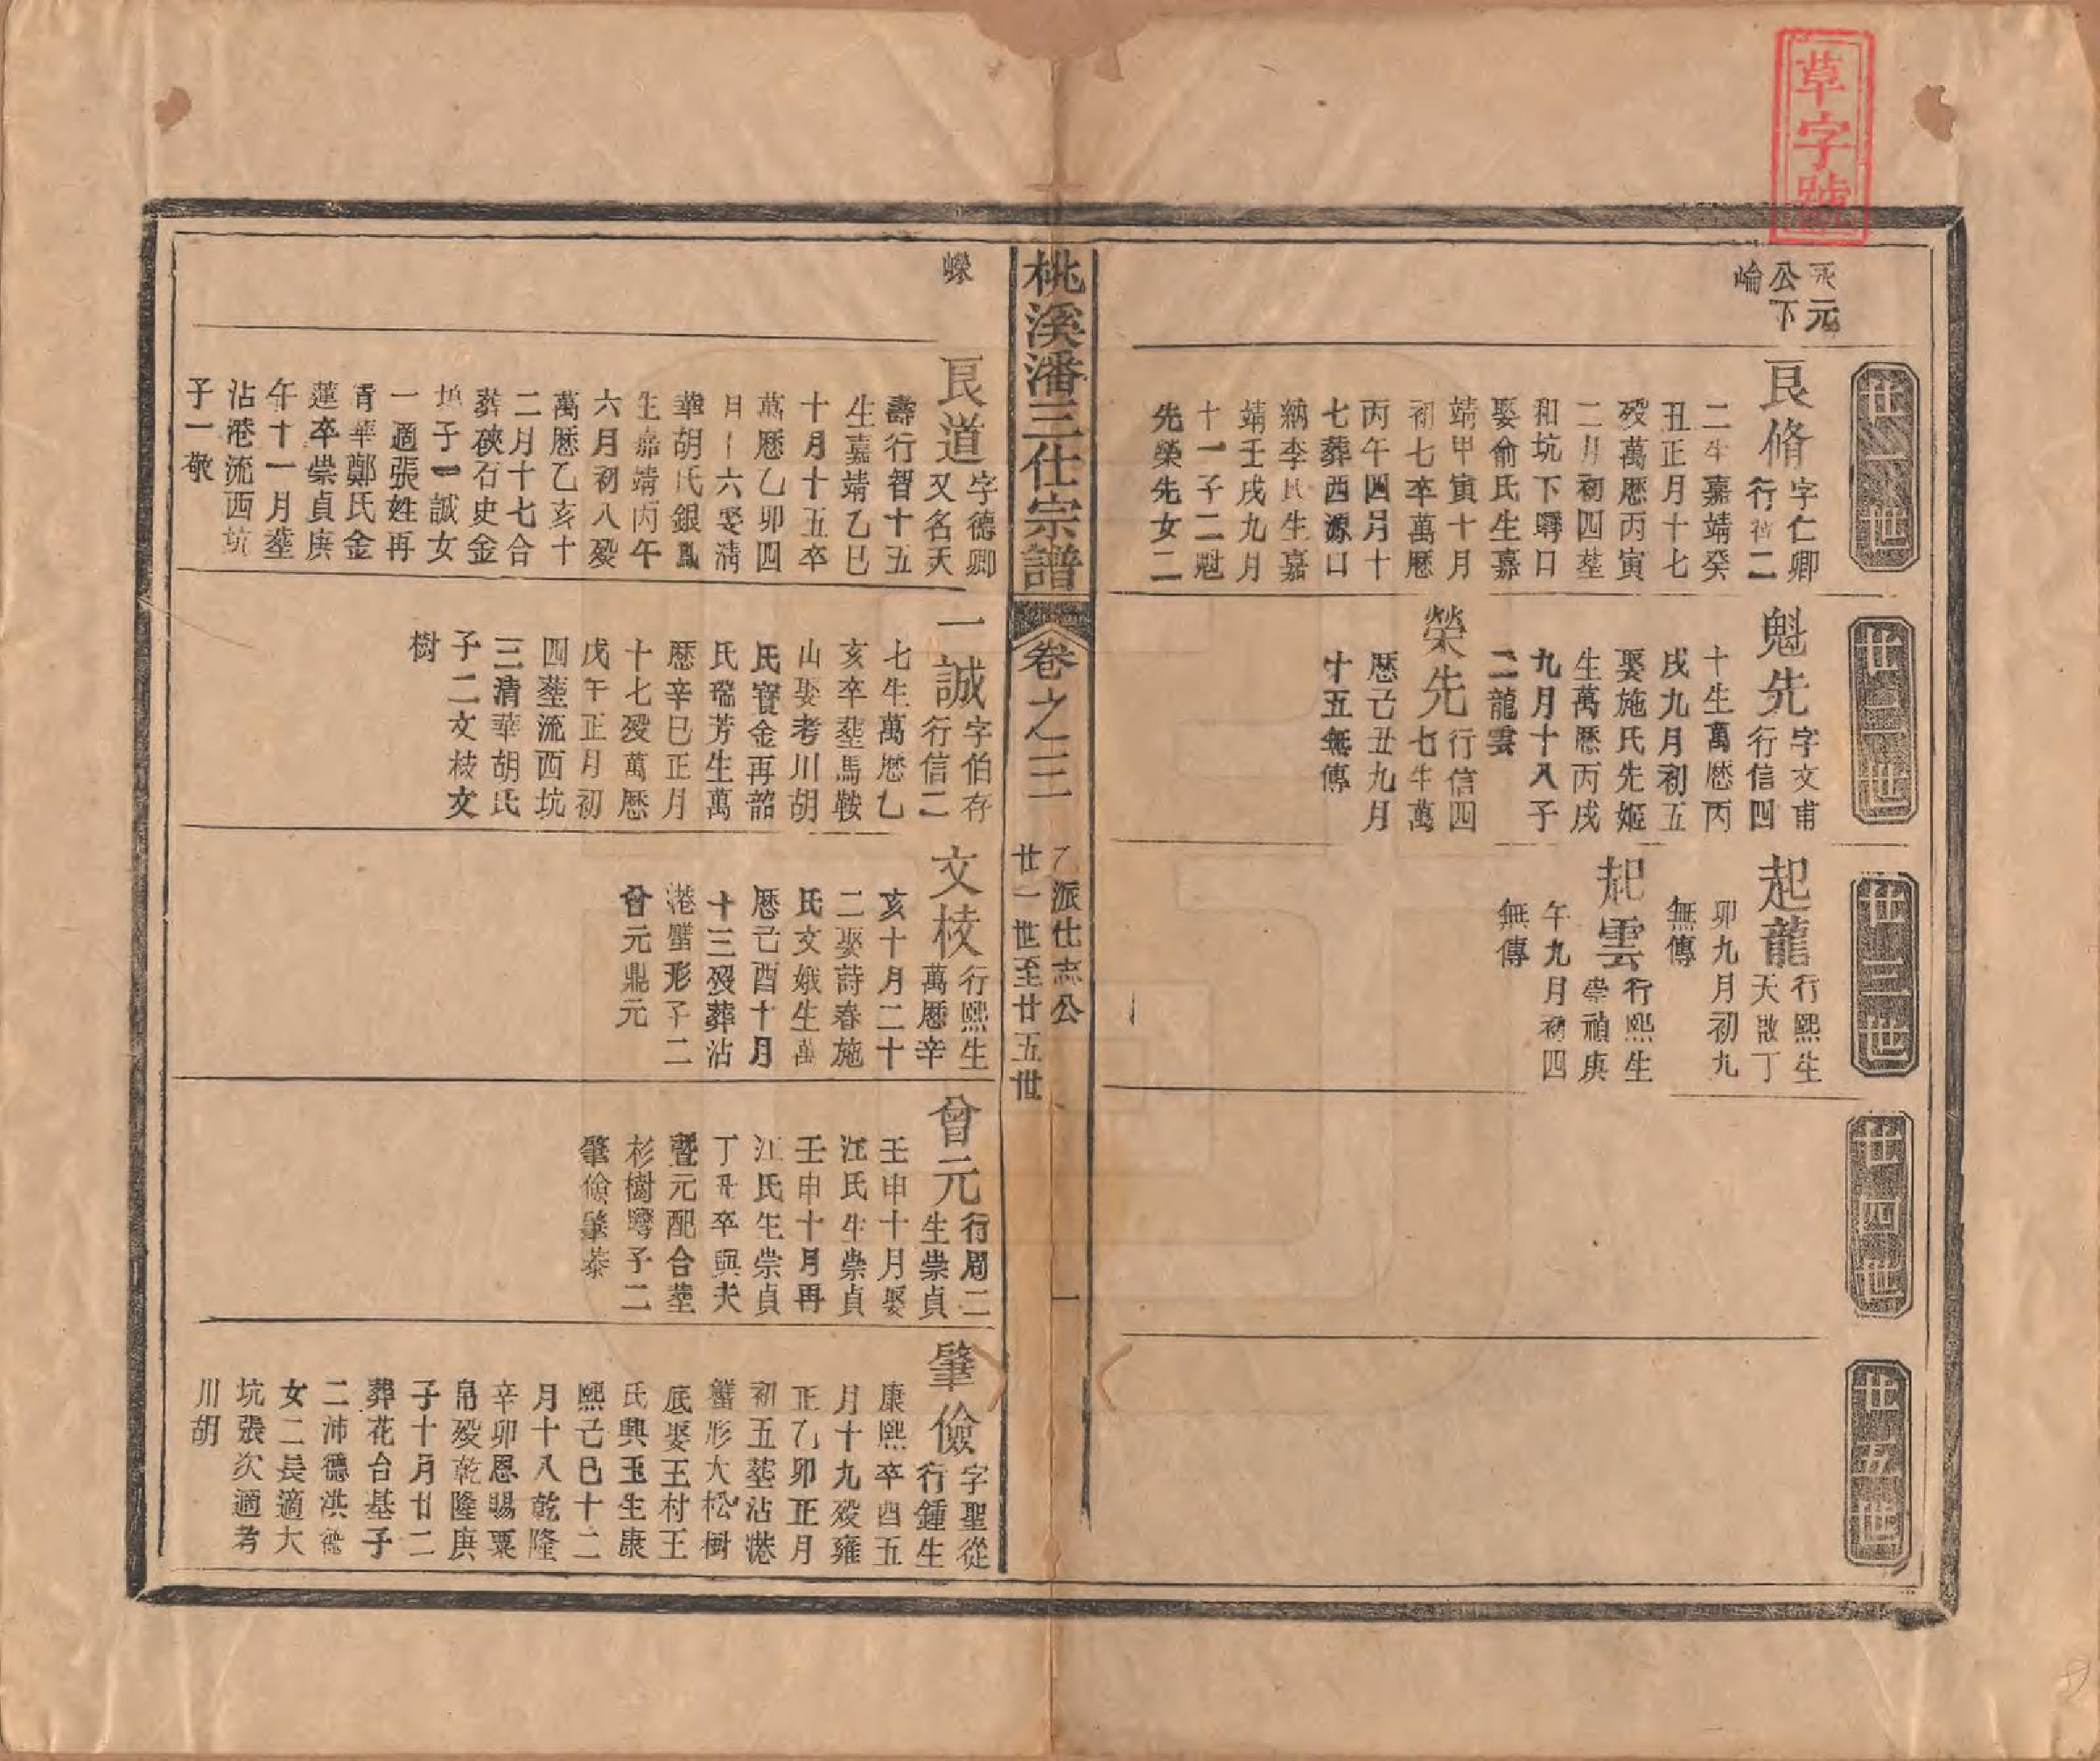 草字號
元
公下
崘
廿一世
良脩
字仁卿
行 二
二生嘉靖癸
丑正月十七
歿萬歷丙寅
二月初四塟
和坑下嶹口
娶俞氏生嘉
靖甲寅十月
初七卒萬歷
丙午四月十
七葬西源口
納李氏生嘉
靖壬戌九月
十一子二魁
先榮先女二
廿二世
魁先
字文甫
行信四
十生萬歷丙
戌九月初五
娶施氏先姬
生萬歷丙戌
九月十八子
二龍雲
榮先
行信四
七生萬
歷己丑九月
十五無傳
廿三世
起龍
行熙生
天啟丁
卯九月初九
無傳
起雲
行熙生
崇禎庚
午九月初四
無傳
廿四世
廿五世
桃溪潘三仕宗譜
卷之三
乙派仕志公
廿一世至廿五世
一
嶸
良道
字德卿
又名天
壽行智十五
生嘉靖乙巳
十月十五卒
萬歷乙卯四
月十六娶淸
華胡氏銀鳳
生嘉靖丙午
六月初八歿
萬歷乙亥十
二月十七合
葬硤石史金
坵子一誠女
一適張姓再
青華鄭氏金
蓮卒崇貞庚
午十一月塟
沾港流西坑
子一敬
一誠
字伯存
行信二
七生萬歷乙
亥卒塟馬鞍
山娶考川胡
氏寶金再韶
氏瑞芳生萬
歷辛巳正月
十七歿萬歷
戊午正月初
四塟流西坑
三清華胡氏
子二文棱文
樹
文棱
行熙生
萬歷辛
亥十月二十
二娶詩春施
氏文娥生萬
歷己酉十月
十三歿葬沾
港蟹形子二
曾元鼎元
曾元
行周二
生崇貞
壬申十月娶
江氏生崇貞
壬申十月再
江氏生崇貞
丁丑卒與夫
暨元配合塟
杉樹嶹子二
肇儉肇泰
肇儉
字聖從
行鍾生
康熙卒酉五
月十九歿雍
正乙卯正月
初五塟沾港
蟹形大松樹
底娶王村王
氏興玉生康
熙己巳十二
月十八乾隆
辛卯恩賜粟
帛歿乾隆庚
子十月廿二
葬花台基子
二沛德洪德
女二長適大
坑張次適考
川胡